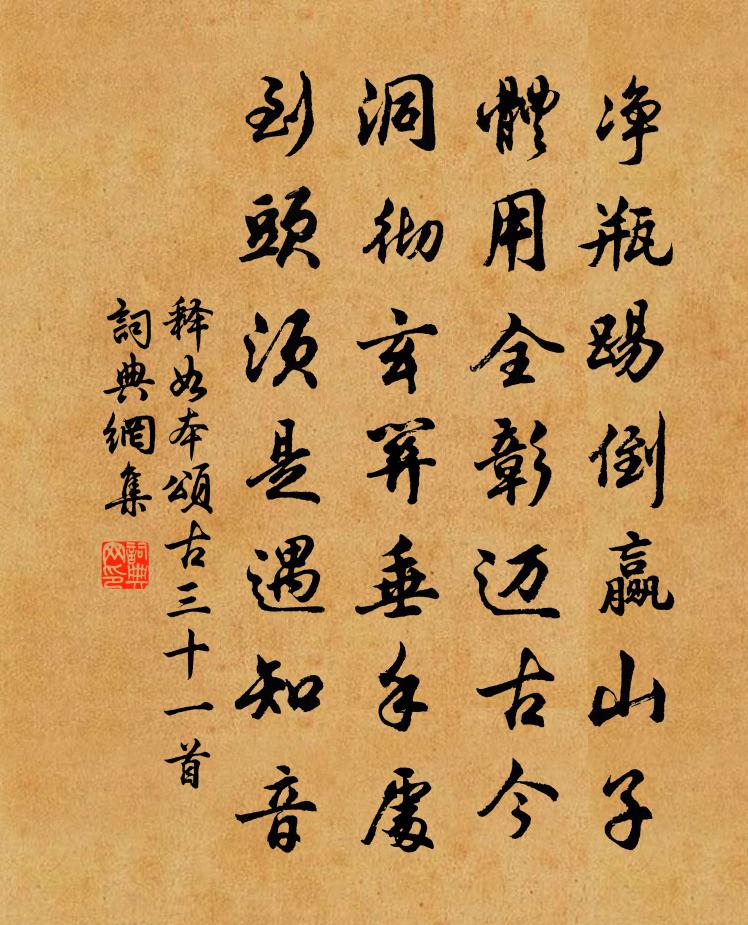 净瓶踢倒赢山子
體用全彰迈古今
洞彻玄关垂手處
到頭须是遇知音
释如本頌古三十一首
詞典網集
詞典網印